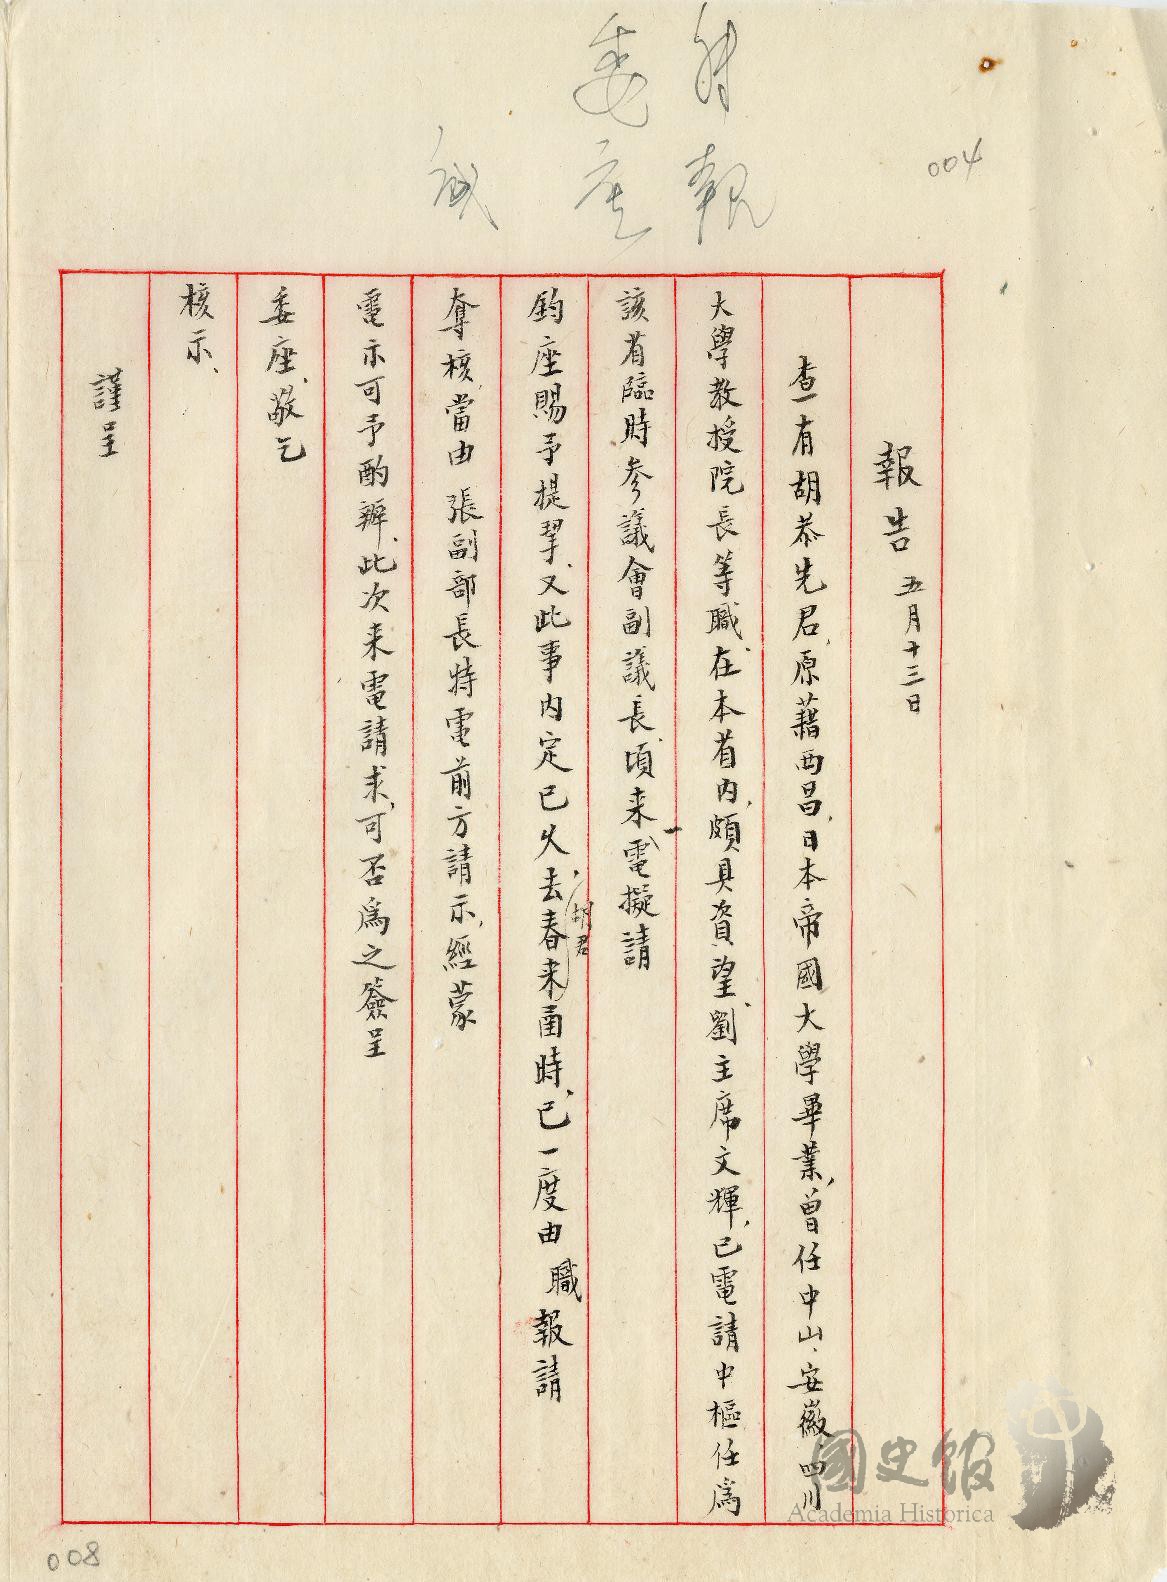 004
報
委座
報告 五月十三日
查有胡恭先君、原藉西昌、日本帝國大學畢業、曾任中山、安徽、四川
大學教授院長等職、在本省內、頗具資望、劉主席文輝、已電請中樞任為
該省臨時參議會副議長、頃来電擬請
鈞座賜予提挈、又此事內定已久、去春胡君来函時、已一度由職報請
奪核、當由張副部長特電前方請示、經蒙
電示可予酌辦、此次来電請求、可否為之簽呈
委座、敬乞
核示、
謹呈
008
國史館
Academia Historica